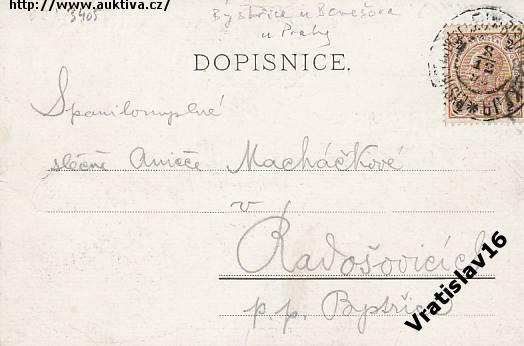 http://www.auktiva.cz/
3405
Bystřice u Benešova
u Prahy
DOPISNICE.
Spanilomyslné
slečně Aničce Macháčkové
v
Radošovicích
p. p. Bystřice
Vratislav16